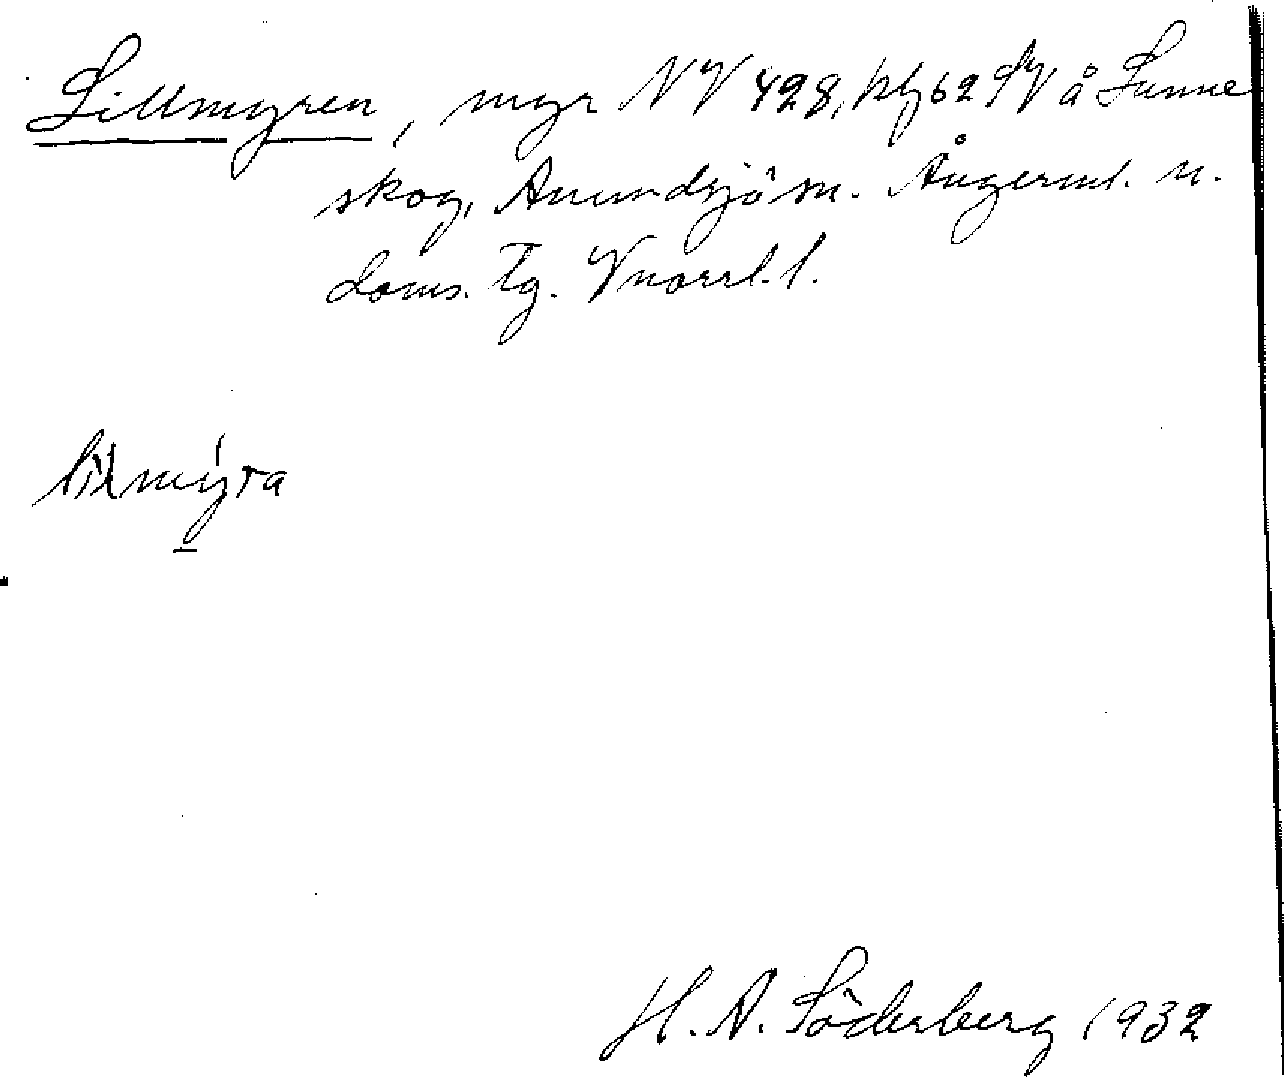 Lillmyren, myr NV 428, kbl 62 SV å Sunne
skog, Anundsjö sn. Ångerml. n.
doms. Tg. Vnorrl. l.
lìlmýra
H. A. Söderberg 1932